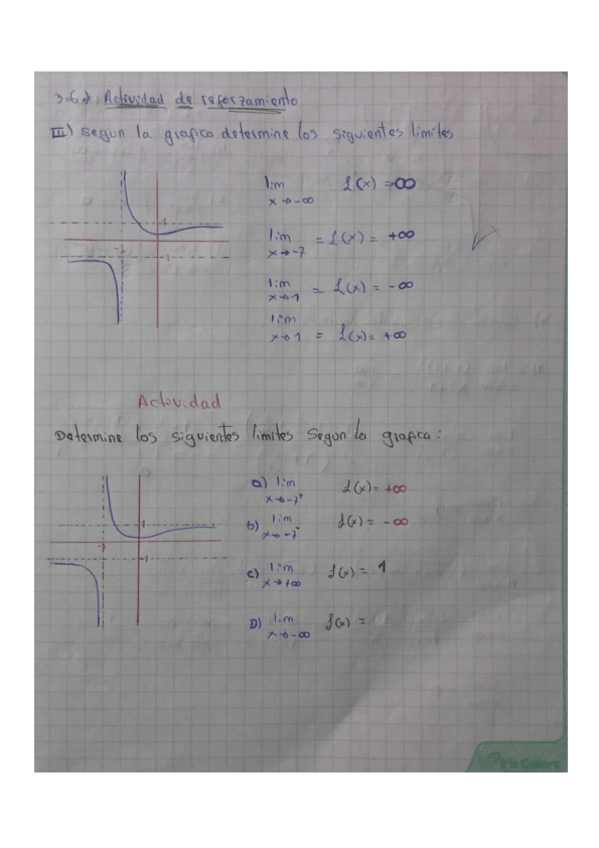 3.6.) Actividad de reforzamiento
III) segun la grafica determine los siguientes limites
lim f(x) = ∞
x→-∞
1
-7
-1
lim = f(x) = +∞
x→-7
lim = f(x) = -∞
x→1
lim
x→1 = f(x) = +∞
Actividad
Determine los siguientes limites Segun la grafica:
a) lim f(x) = +∞
x→-7⁺
1
b) lim f(x) = -∞
x→-7⁻
-7
-1
c) lim f(x) = 1
x→+∞
D) lim f(x) =
x→-∞
Iris Colors